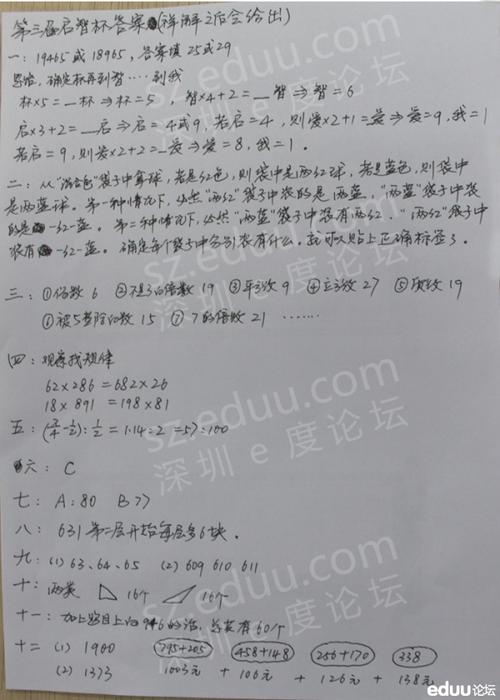 第三届启智杯答案(详解之后会给出)
一：19465或18965，答案填25或29
思路，确定杯再到智……到我
杯×5=_杯⇒杯=5，智×4+2=_智⇒智=6
启×3+2=_启⇒启=4或9，若启=4，则爱×2+1=爱⇒爱=9，我=1
若启=9，则爱×2+2=_爱⇒爱=8，我=1.
二：从“混合包”袋子中拿球，若是红色，则袋中是两红球，若是蓝色，则袋中
是两蓝球。第一种情况下，必然“两红”袋子中装的是两蓝，“两蓝”袋子中装
的是一红一蓝。第二种情况下，必然“两蓝”袋子中装有两红，“两红”袋子中
装有一红一蓝。确定每个袋子中各引装有什么。就可以贴上正确标签了。
三：①倍数6 ②不是3的倍数19 ③平方数9 ④立方数27 ⑤质数19
⑥被5整除的数15 ⑦7的倍数21 ……
四：观察找规律
62×286=682×26
18×891=198×81
五：=1.14:2=57:100
六：C
七：A:80 B77
八：631第二层开始每层多6块.
九：(1)63、64、65 (2)609 610 611
十：两类 16个 16个
十一：加上题目上的6的话，总共有60个
十二 (1) 1900 795+205 458+148 256+170 338
(2) 1373 1003元 + 106元 + 126元 + 138元
sz.eduu.com
深圳e度论坛
sz.eduu.com
深圳e度论坛
sz.eduu.com
深圳e度论坛
eduu论坛